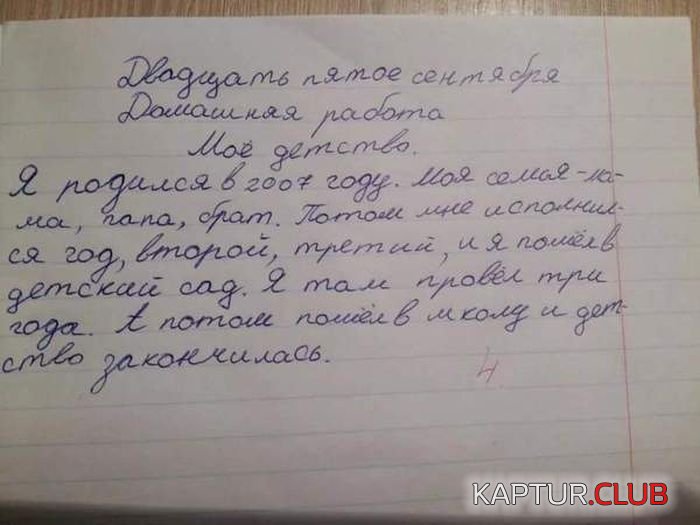 Двадцать пятое сентября
Домашняя работа
Моё детство.
Я родился в 2007 году. Моя семья-ма-
ма, папа, брат. Потом мне исполнил-
ся год, второй, третий, и я пошёл в
детский сад. Я там провёл три
года. А потом пошёл в школу и дет-
ство закончилась.
4
KAPTUR.CLUB